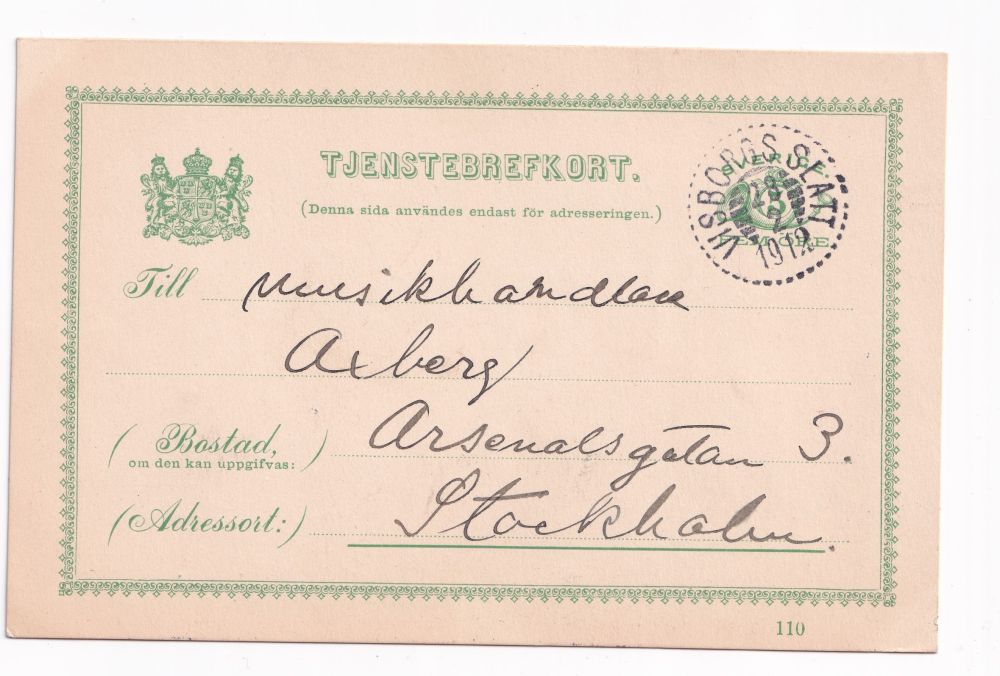 TJENSTEBREFKORT.
(Denna sida användes endast för adresseringen.)
SVERIGE
5
FEM ÖRE
VISBORGS SLÄTT
28
2
1912
Till musikhandlare
Axberg
(Bostad,
om den kan uppgifvas:) Arsenalsgatan 3.
(Adressort:) Stockholm.
110